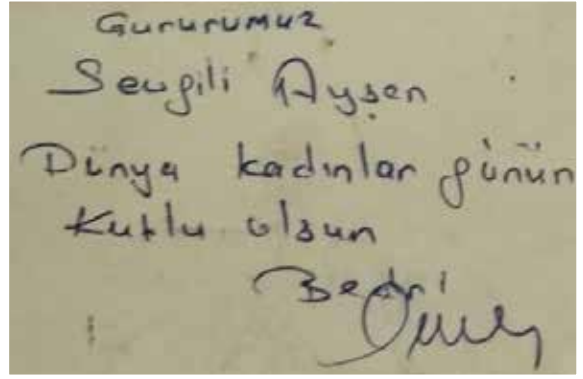 Gururumuz
Sevgili Ayşen
Dünya kadınlar günün
Kutlu olsun
Bedri